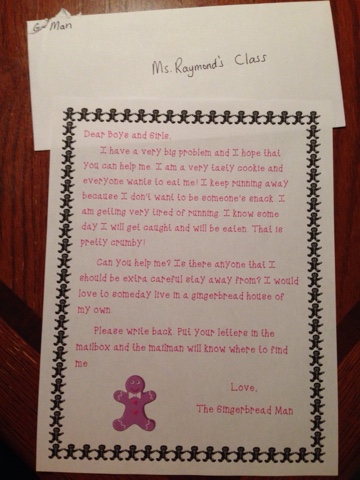 G-Man
Ms. Raymond's Class
Dear Boys and Girls,
I have a very big problem and I hope that
you can help me. I am a very tasty cookie and
everyone wants to eat me! I keep running away
because I don't want to be someone's snack. I
am getting very tired of running. I know some
day I will get caught and will be eaten. That is
pretty crumby!
Can you help me? Is there anyone that I
should be extra careful stay away from? I would
love to someday live in a gingerbread house of
my own.
Please write back. Put your letters in the
mailbox and the mailman will know where to find
me.
Love,
The Gingerbread Man